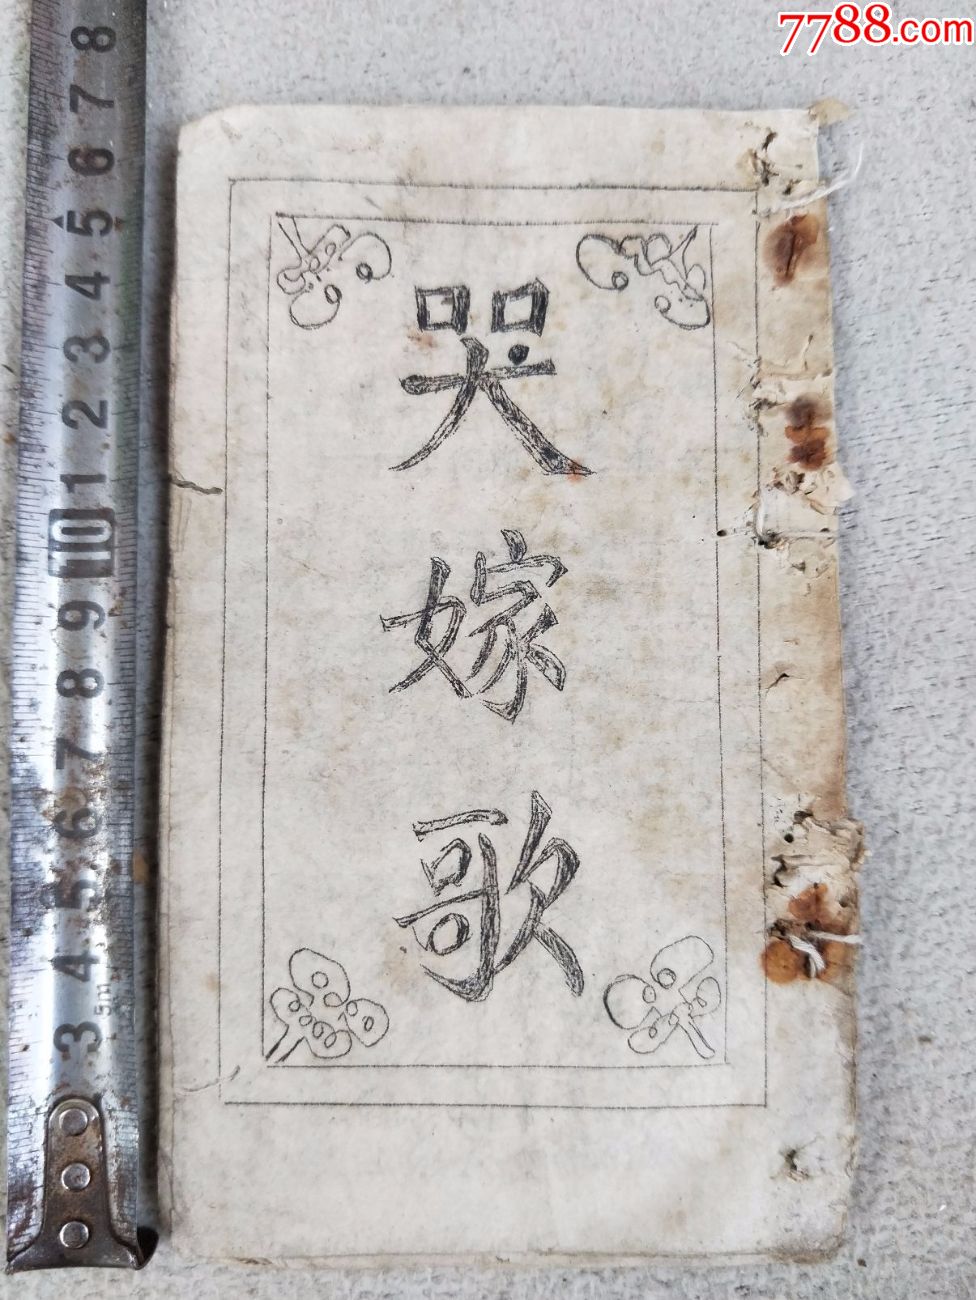 7788.com
哭嫁歌
8
7
6
5
4
3
2
1
10
9
8
7
6
5
4
3
5m